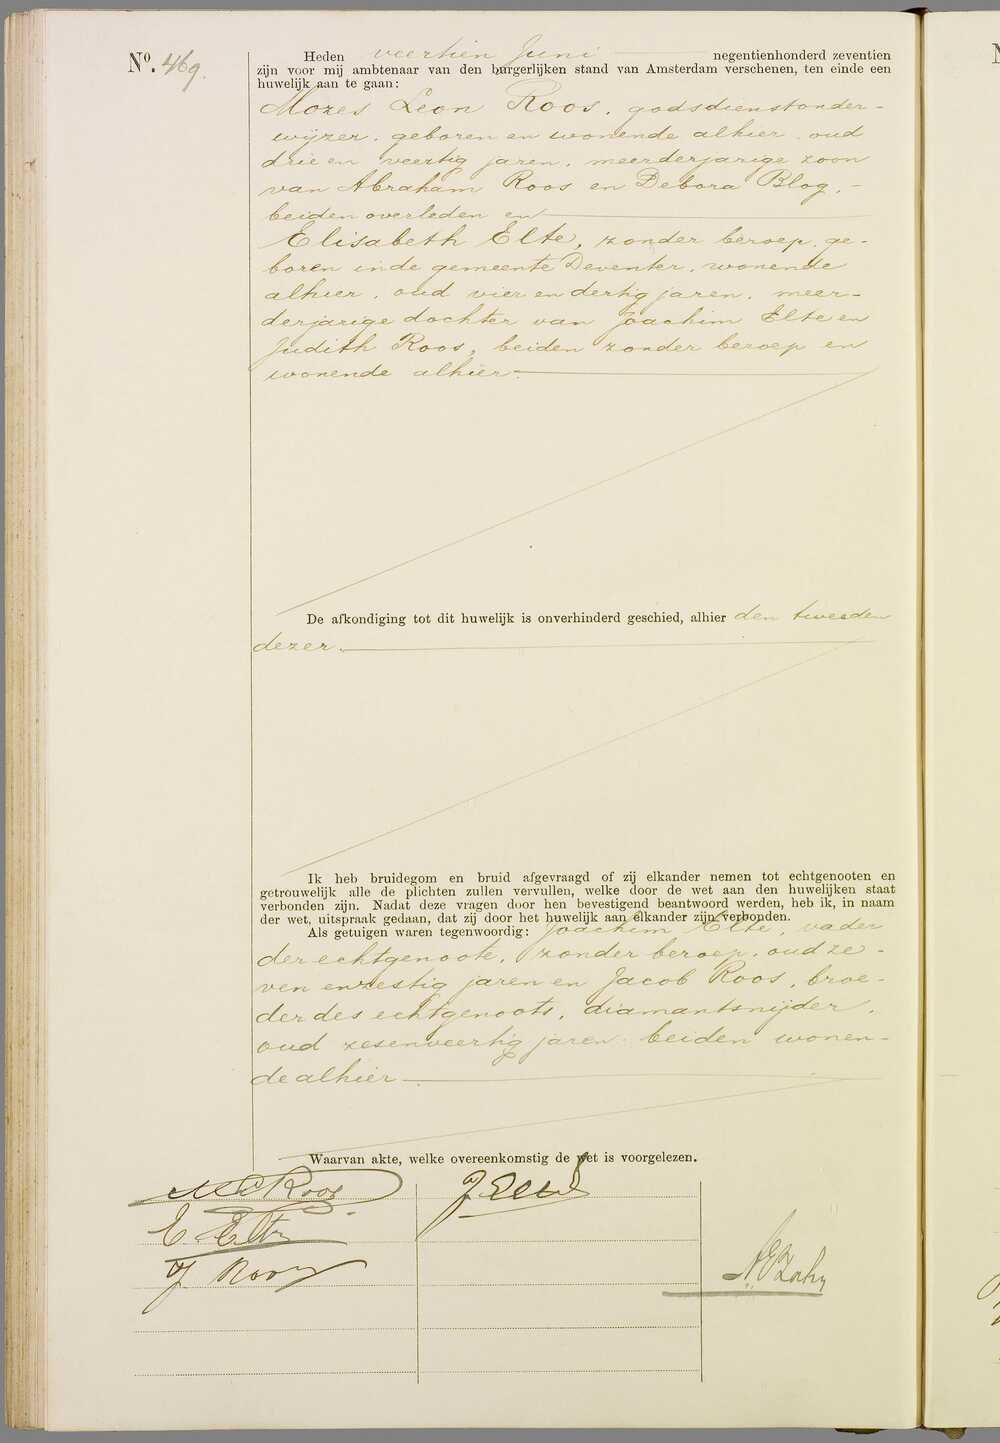 Nº. 469.
Heden veertien Juni negentienhonderd zeventien
zijn voor mij ambtenaar van den burgerlijken stand van Amsterdam verschenen, ten einde een
huwelijk aan te gaan:
Mozes Leon Roos, godsdienstonder-
wijzer, geboren en wonende alhier, oud
drie en veertig jaren, meerderjarige zoon
van Abraham Roos en Debora Blog, -
beiden overleden en
Elisabeth Elte, zonder beroep, ge-
boren in de gemeente Deventer, wonende
alhier, oud vier en dertig jaren, meer-
derjarige dochter van Joachim Elte en
Judith Roos, beiden zonder beroep en
wonende alhier.
De afkondiging tot dit huwelijk is onverhinderd geschied, alhier den tweeden
dezer.
Ik heb bruidegom en bruid afgevraagd of zij elkander nemen tot echtgenooten en
getrouwelijk alle de plichten zullen vervullen, welke door de wet aan den huwelijken staat
verbonden zijn. Nadat deze vragen door hen bevestigend beantwoord werden, heb ik, in naam
der wet, uitspraak gedaan, dat zij door het huwelijk aan elkander zijn verbonden.
Als getuigen waren tegenwoordig: Joachim Elte, vader
der echtgenoote, zonder beroep, oud ze-
ven en zestig jaren en Jacob Roos, broe-
der des echtgenoots, diamantsnijder,
oud zesenveertig jaren beiden wonen-
de alhier
Waarvan akte, welke overeenkomstig de wet is voorgelezen.
M L Roos J Elte
E. Elte
J. Roos